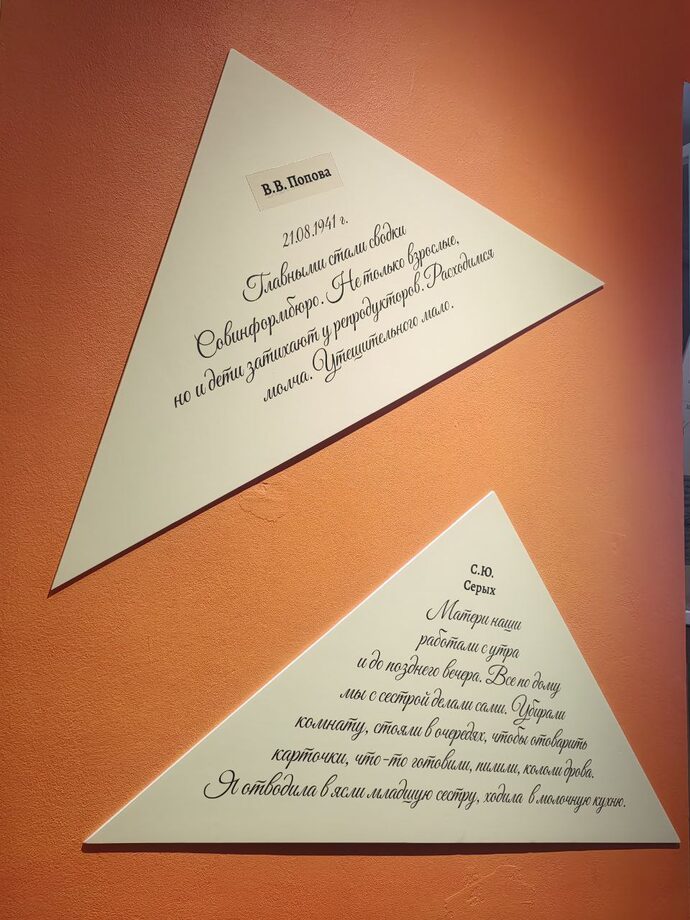 В.В. Попова
21.08.1941 г.
Главными стали сводки
Совинформбюро. Не только взрослые,
но и дети затихают у репродукторов. Расходимся
молча. Утешительного мало.
С.Ю.
Серых
Матери наши
работали с утра
и до позднего вечера. Все по дому
мы с сестрой делали сами. Убирали
комнату, стояли в очередях, чтобы отоварить
карточки, что-то готовили, пилили, кололи дрова.
Я отводила в ясли младшую сестру, ходила в молочную кухню.